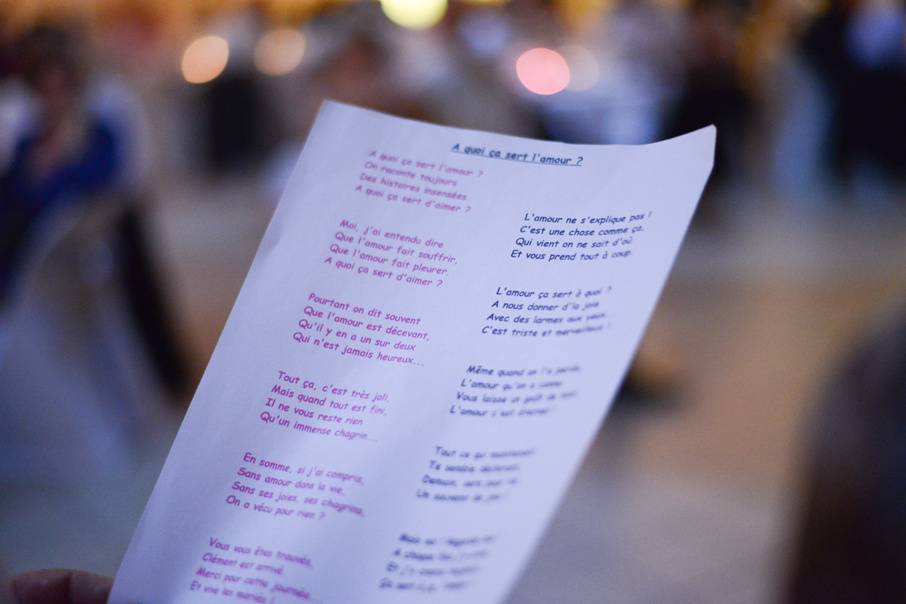 A quoi ça sert l'amour ?
A quoi ça sert l'amour ?
On raconte toujours
Des histoires insensées.
A quoi ça sert d'aimer ?
Moi, j'ai entendu dire
Que l'amour fait souffrir,
Que l'amour fait pleurer.
A quoi ça sert d'aimer ?
Pourtant on dit souvent
Que l'amour est décevant,
Qu'il y en a un sur deux
Qui n'est jamais heureux...
Tout ça, c'est très joli,
Mais quand tout est fini,
Il ne vous reste rien
Qu'un immense chagrin...
En somme, si j'ai compris,
Sans amour dans la vie,
Sans ses joies, ses chagrins,
On a vécu pour rien ?
Vous vous êtes trouvés,
Clément est arrivé.
Merci pour cette journée...
Et vive les mariés !
L'amour ne s'explique pas !
C'est une chose comme ça,
Qui vient on ne sait d'où
Et vous prend tout à coup.
L'amour ça sert à quoi ?
A nous donner d'la joie
Avec des larmes aux yeux.
C'est triste et merveilleux !
Même quand on l'a perdu,
L'amour qu'on a connu
Vous laisse un goût de
L'amour c'est éternel !
Tout ce qui maintenant
Te semble
Demain, sera pour toi
Un souvenir de